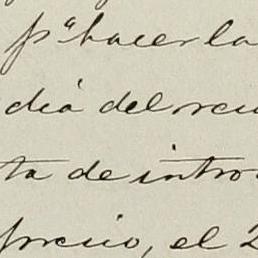 pª hacer la
dia del recu
ta de intro
precio, el 2